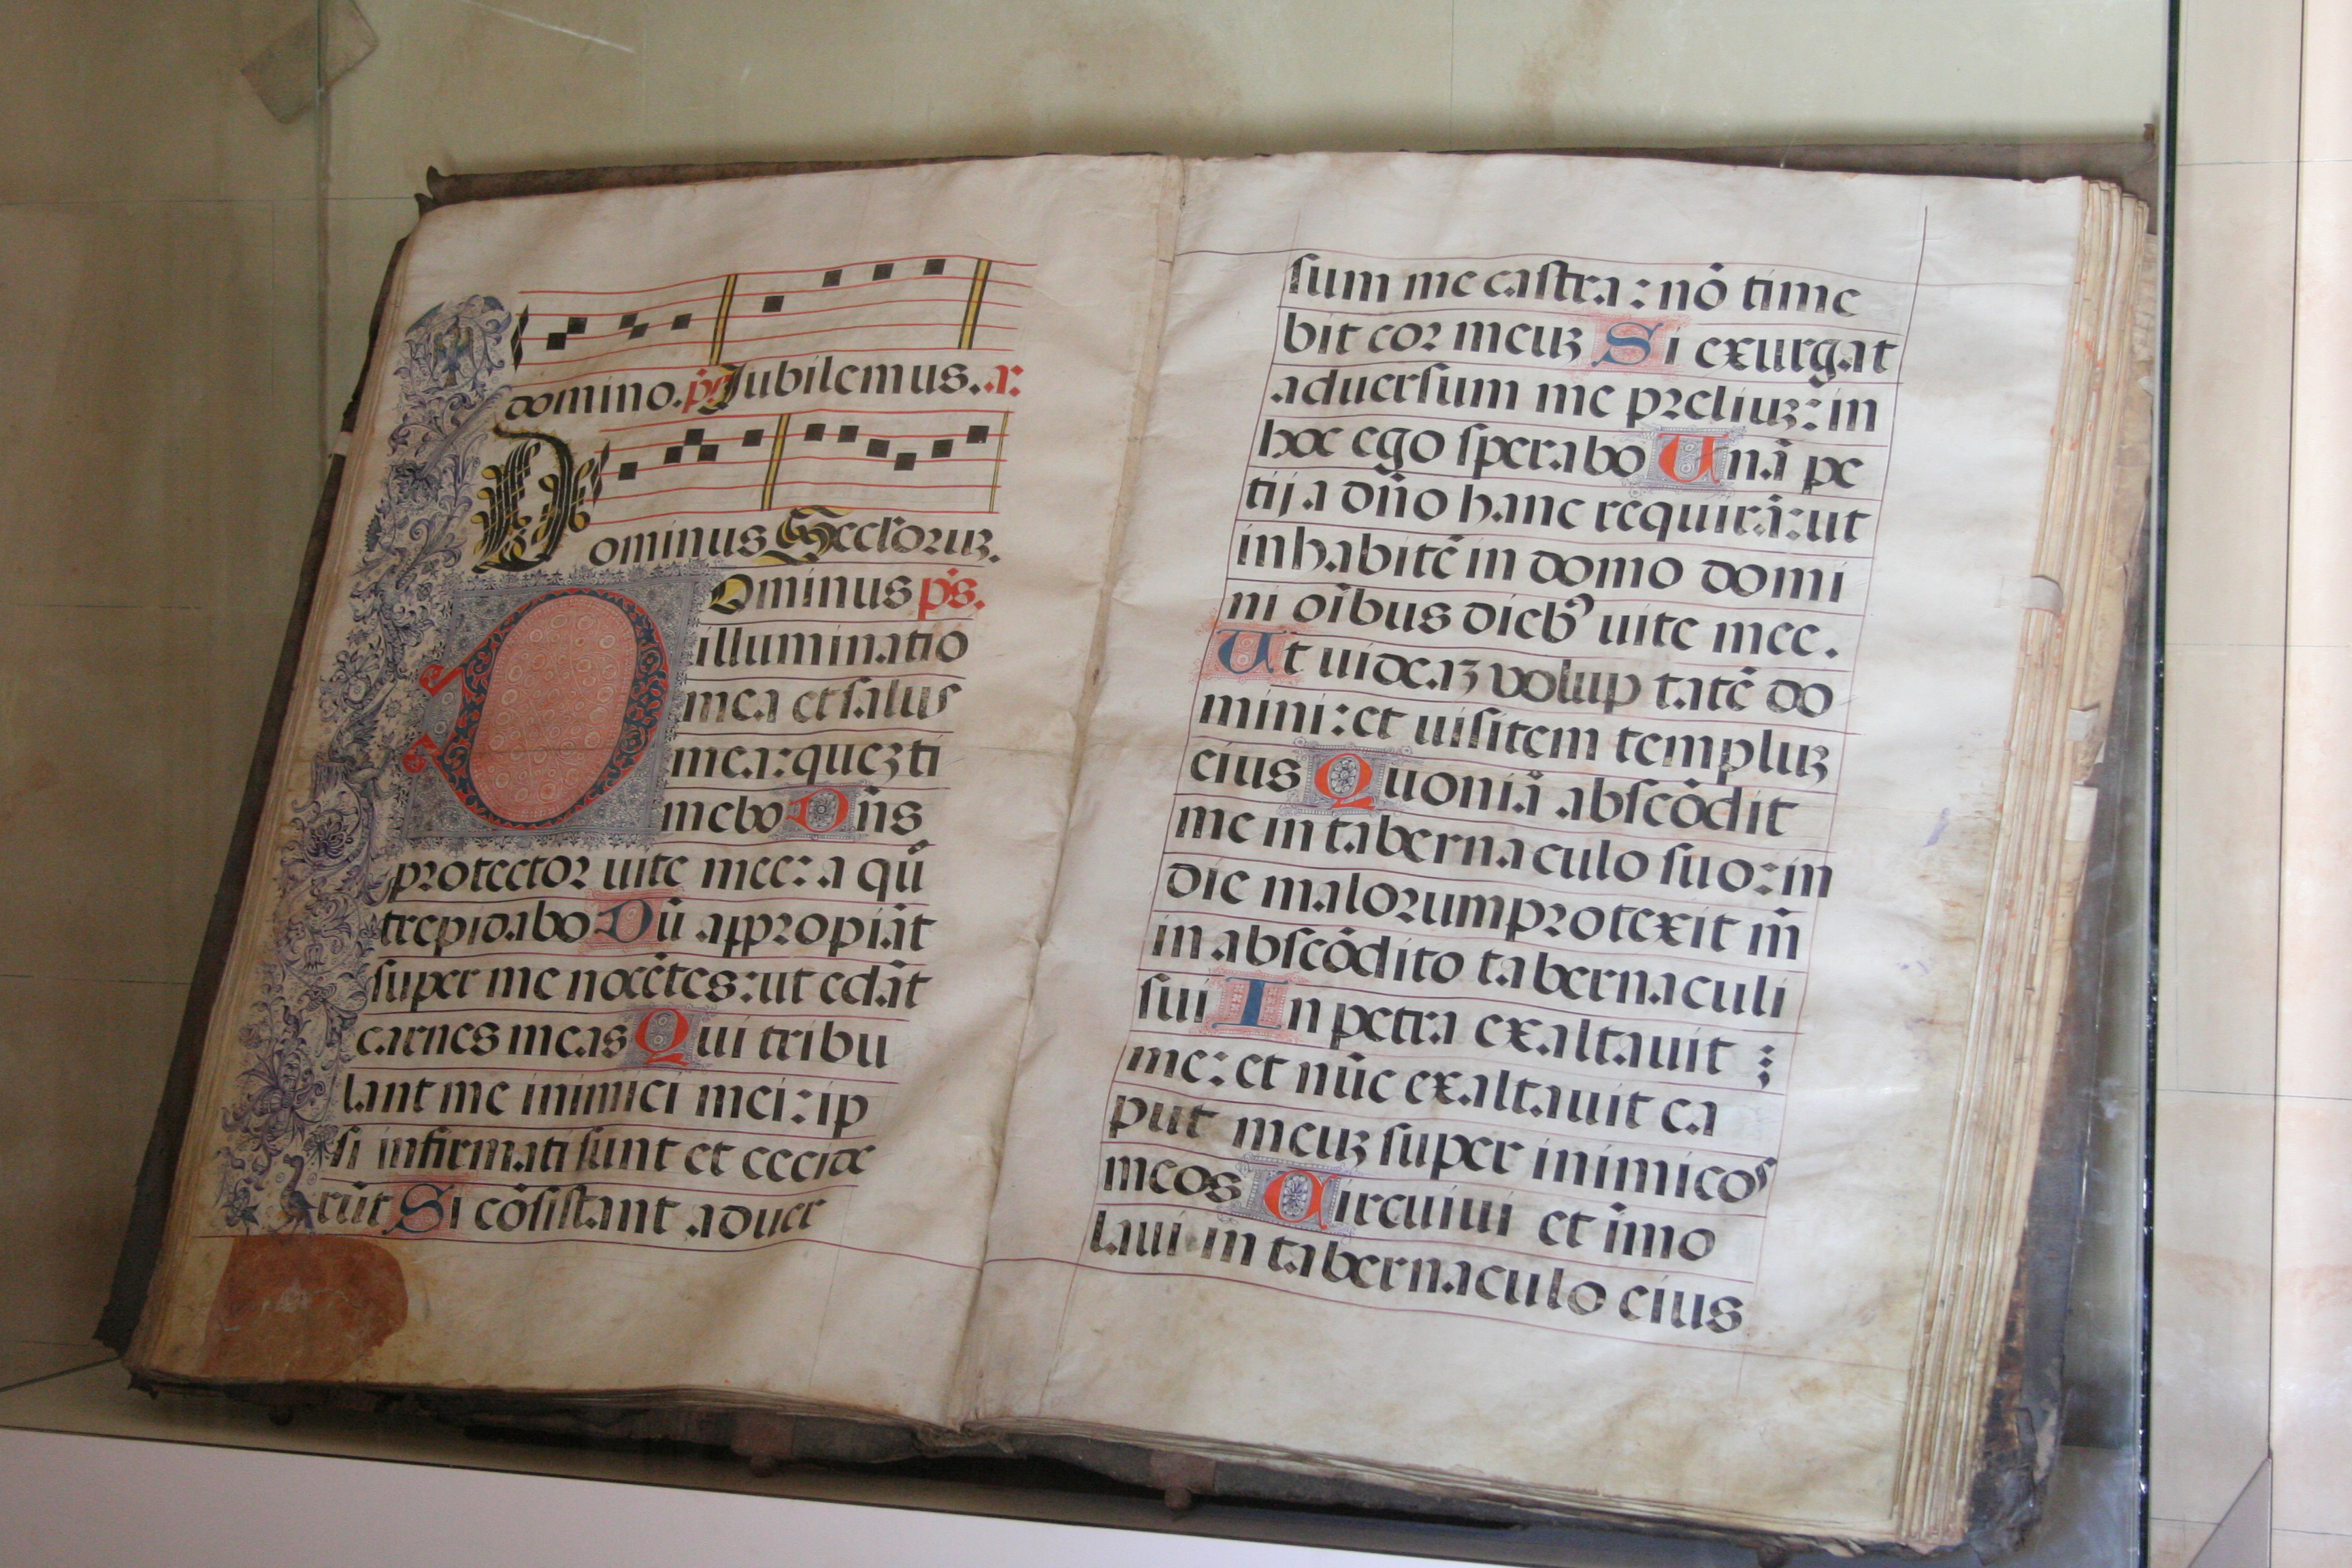 domino. ps. Jubilemus. a:
Dominus Secloruz.
Dominus ps.
illuminatio
mea et salus
mea: quez ti
mebo Dn̄s
protector uite mee: a qū
trepidabo Dū appropiāt
super me nocētes: ut edāt
carnes meas Qui tribu
lant me inimici mei: ip
si infirmati sunt et cecide
rūt Si cōsistant aduer
sum me castra: nō time
bit cor meuz Si exurgat
aduersum me preliuz: in
hoc ego sperabo Unā pe
tij a dn̄o hanc requirā: ut
inhabitē in domo domi
ni oībus dieb⁹ uite mee.
Ut uideaz voluptatē do
mini: et uisitem templuz
eius Quoniā abscōdit
me in tabernaculo suo: in
die malorum protexit m̄
in abscōdito tabernaculi
sui In petra exaltauit
me: et nūc exaltauit ca
put meuz super inimicos
meos Circuiui et īmo
laui in tabernaculo eius